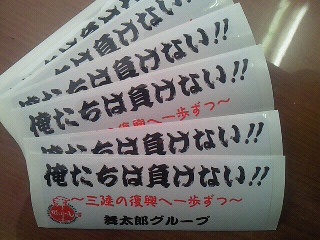 俺たちは負けない!!
俺たちは負けない!!
俺たちは負けない!!
の復興へ一歩ずつ～
俺たちは負けない!!
俺たちは負けない!!
～三陸の復興へ一歩ずつ～
舞太郎グループ